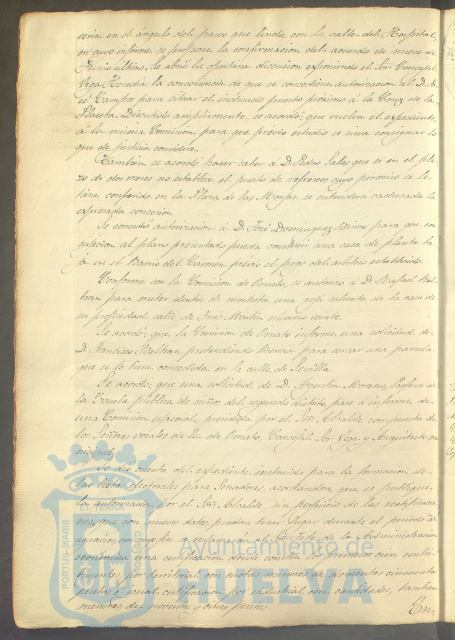 en el ángulo del paseo que linda con la calle del Hospital,
en cuyo informe se propone la confirmación del acuerdo de nueve de
Junio último, se abrió la oportuna discusión exponiendo el Sor. Concejal
Vega Heredia la conveniencia de que se concediera autorización al D. 
Campos para situar el indicado puesto próximo á la Cruz de la
Placeta. Discutido ampliamente, se acordó: que vuelva el expediente
á la misma Comisión para que previo estudio se sirva consignar lo
que de justicia considere.
También se acordó hacer saber á D. Pedro Salas que si en el pla-
zo de dos meses no establece el puesto de refrescos cuyo permiso se le
tiene conferido en la Plaza de las Monjas se entenderá caducada la
expresada concesión.
Se concedió autorización á D. José Dominguez para que con
sujeción al plano presentado pueda construir una casa de planta ba-
ja en el Barrio del Carmen previo el pago del arbitrio establecido.
Conforme con la Comisión de Ornato, se autorizó á D. Rafael Bel-
tran para meter dentro de una casa de
su propiedad calle de José Martín número veinte.
Se acordó: que la Comisión de Ornato informe una solicitud de
D. Francisco Beltran pretendiendo licencia para cercar una parcela
que se le tiene concedida en la calle de Sevilla.
Se acordó: que una solicitud de D. Agustin Moreno, Profesor de
la Escuela pública de niños del segundo distrito, pase á informe de
una Comisión especial, presidida por el Sor. Alcalde compuesta de
los Señores vocales de la de Ornato, Concejal Sor. Vega y Arquitecto mu-
nicipal.
Se dió cuenta del expediente instruido para la formación de
las listas electorales para Senadores, acordándose que se publique
la autorizada por el Sor. Alcalde, sin perjuicio de las rectificacio-
nes que con nuevos datos puedan tener lugar durante el periodo de
agravios, con cuyo fin se reclamará al Sor. Jefe de la Administración
económica una certificación donde consten los primeros cien contri-
buyentes por territorial con cuotas menores de doscientas cincuenta
pesetas é igual certificación por industrial con cantidades, también
menores de noventa y cinco pesetas.
PORTUS MARIS
Ayuntamiento de
HUELVA